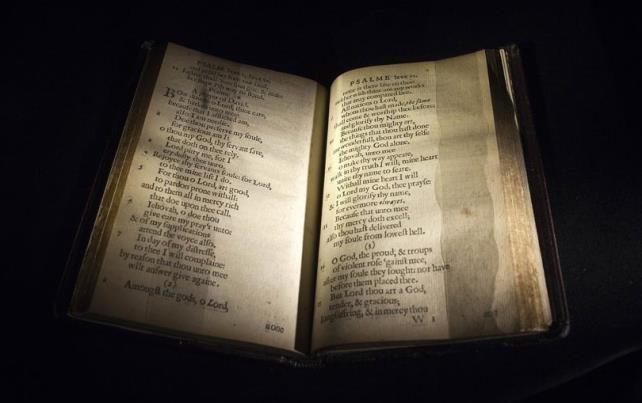 PSALME
A Psalme of David.
Because that I afflicted am,
also I am needie.
Doe thou preserve my soule,
for gracious am I:
o thou my God, thy servant save,
that doth on thee rely.
Lord pitty me, for I
cry
Rejoyce thy servants soule: for Lord,
to thee mine lift I do.
For thou o Lord, art good,
to pardon prone withall:
and to them all in mercy rich
that doe upon thee call.
Jehovah, o doe thou
give eare my pray'r unto:
& of my supplications
attend the voyce also.
In day of my distresse,
to thee I will complaine:
by reason that thou unto mee
wilt answer give againe.
(2)
Amongst the gods, o Lord,
none
PSALME
none is there like to thee:
that may compared bee.
All nations o Lord,
whom thou hast made, the same
shall come & worship thee before:
and glorify thy Name.
Because thou mighty art,
the things that thou hast done
are wonderfull, thou art thy selfe
the mighty God alone.
Jehovah, unto mee
o make thy way appeare,
walk in thy truth I will; mine heart
unite thy name to feare.
Withall mine heart I will
o Lord my God, thee prayse:
& I will glorify thy name,
for evermore alwayes.
Because that unto mee
thy mercy doth excell;
also thou hast delivered
my soule from lowest hell.
(3)
O God, the proud, & troups
of violent rose 'gainst mee,
after my soule they sought: nor have
before them placed thee.
But Lord thou art a God,
tender, & gracious;
longsuffring, & in mercy thou
W